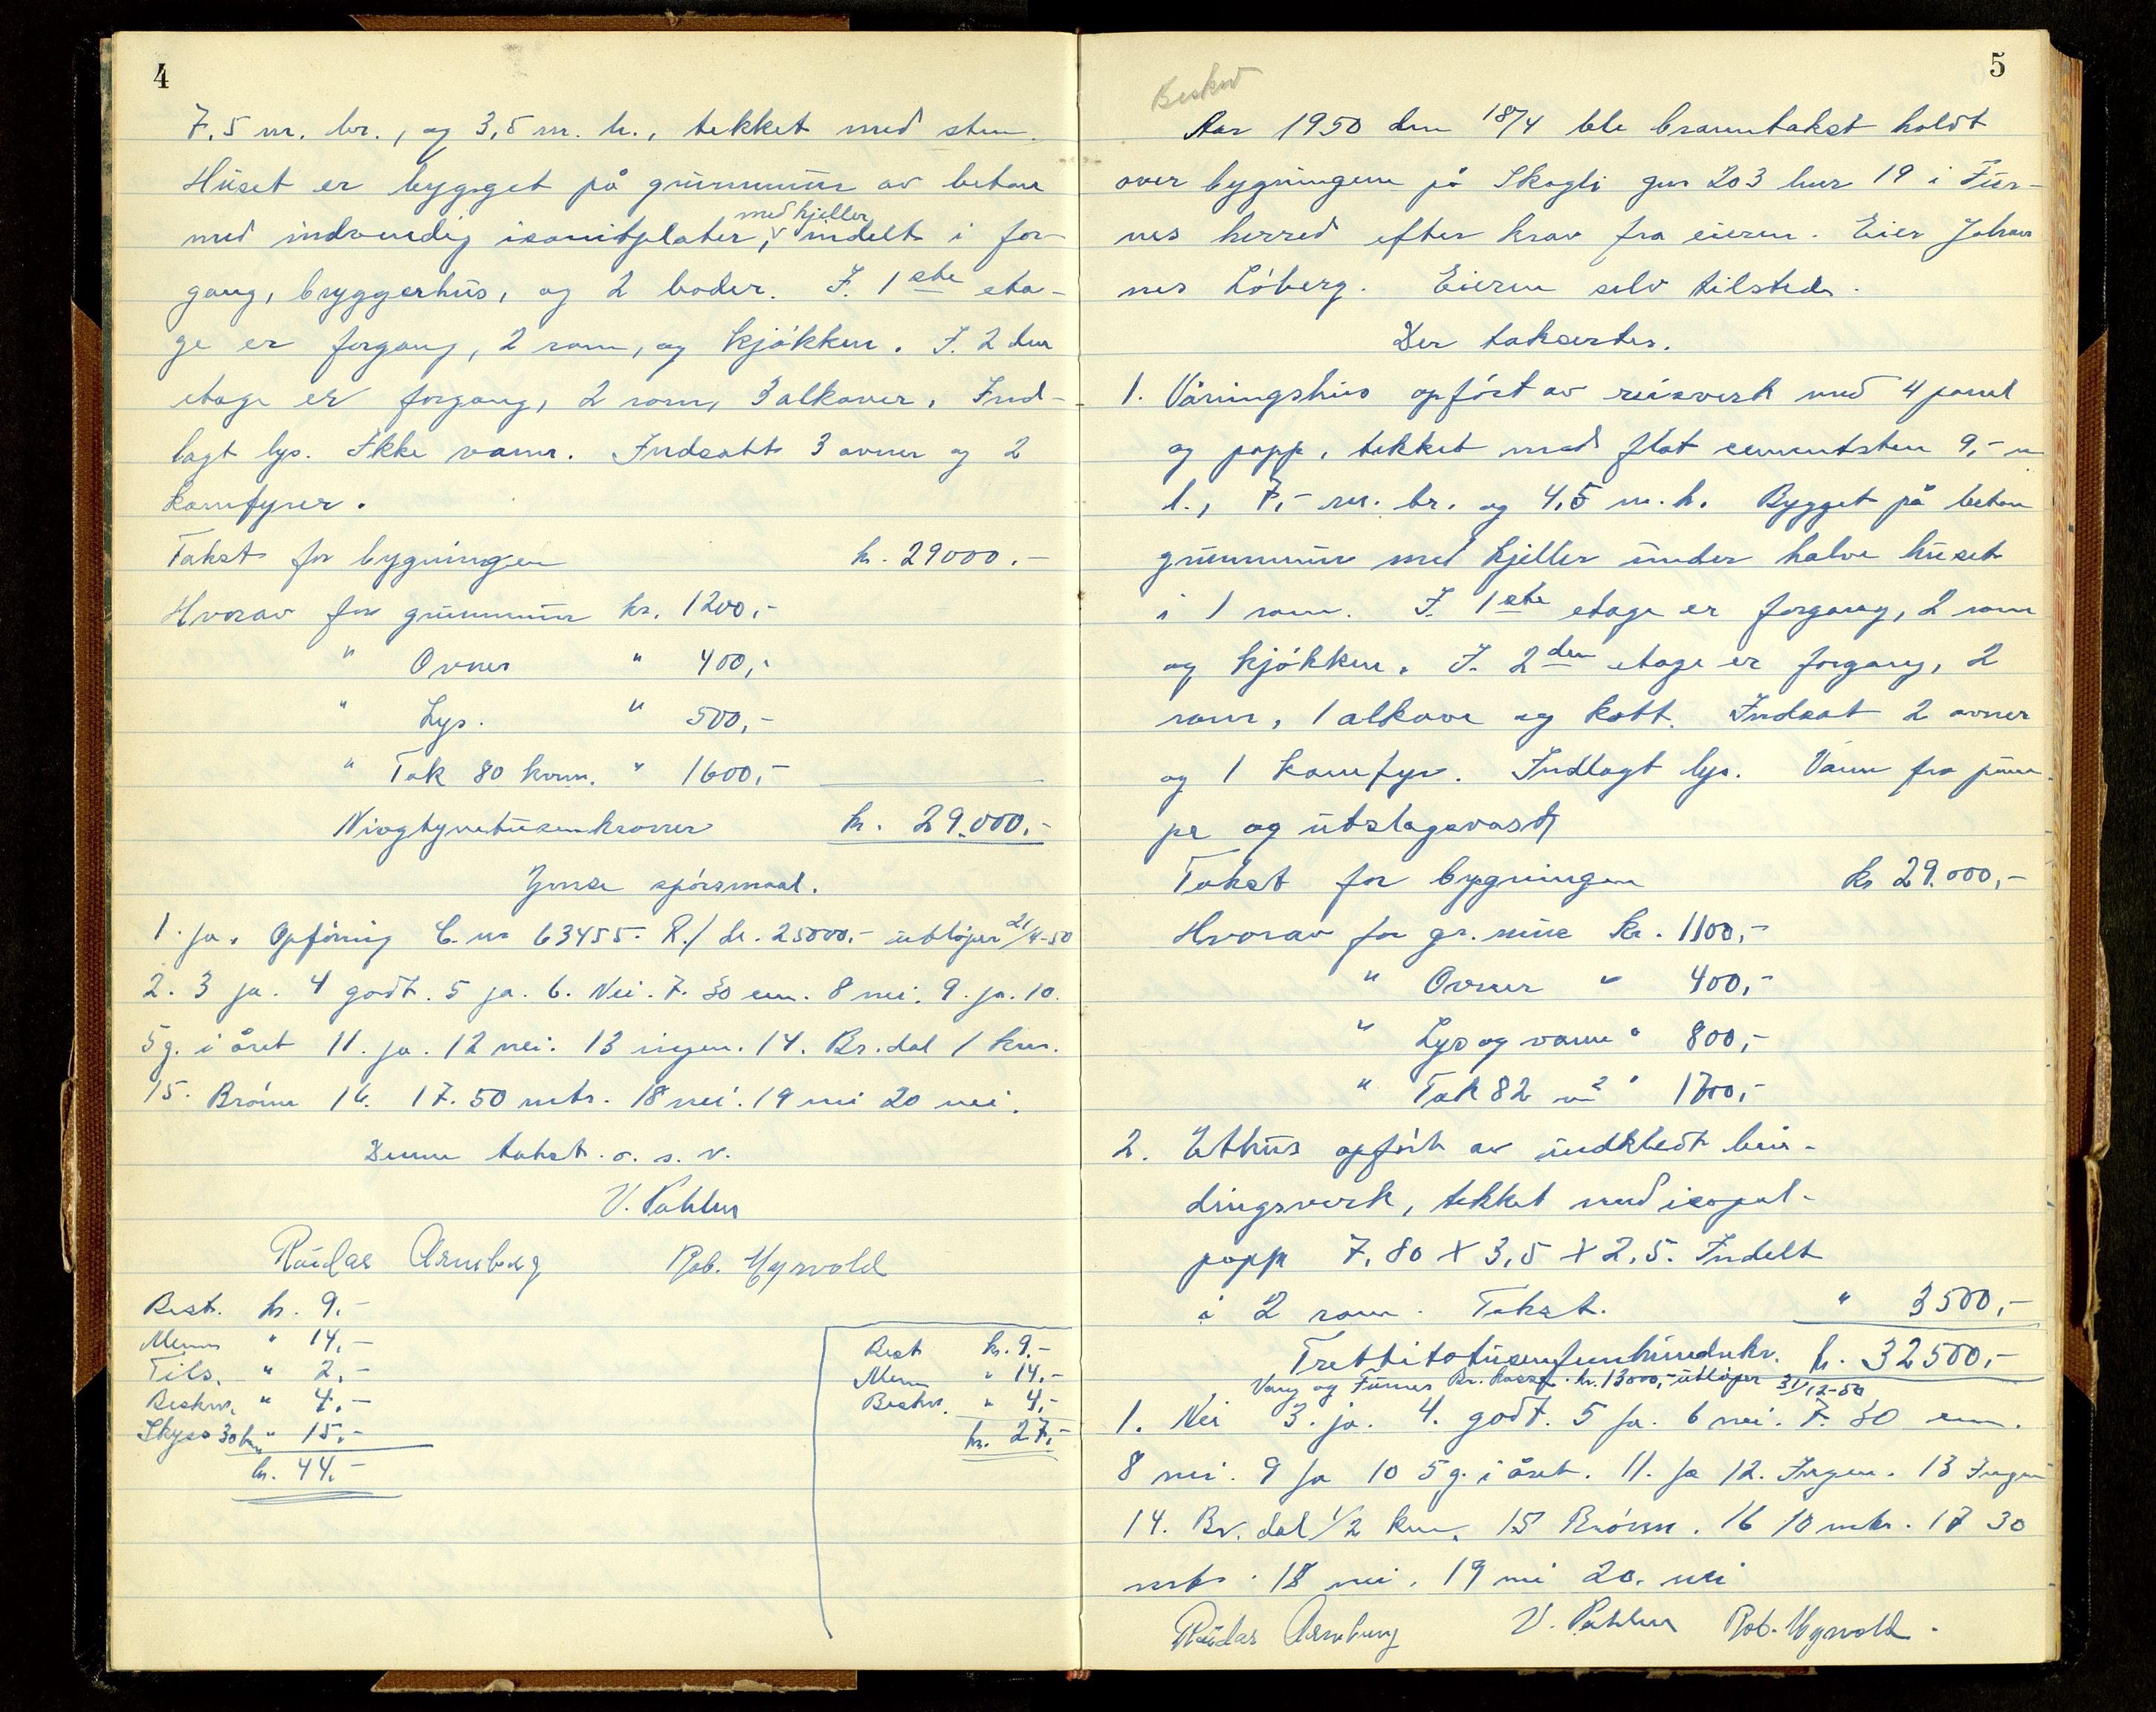 4
7,5 m. br., og 3,5 m. h., tekket med sten.
Huset er bygget på grunnmur av beton
med indvendig isonitplater, med kjeller indelt i for-
gang, bryggerhus, og 2 boder. I. 1ste eta-
ge er forgang, 2 rom, og kjøkken. I. 2den
etage er forgang, 2 rom, 3 alkover. Ind-
lagt lys. Ikke vann. Indsatt 3 ovner og 2
komfyrer.
Takst for bygningen kr. 29000.-
Hvorav for grunnmur kr. 1200,-
" Ovner " 400,-
" Lys. " 500,-
" Tak 80 kvm. " 1600,-
Niogtyvetusenkroner kr. 29.000.-
Gense spørsmaal.
1. Ja. Opføring C. nr 63455. R./ kr. 25000.- utløper 21/4-50
2. 3 ja. 4 godt. 5 ja. 6. Nei. 7. 30 cm. 8 nei. 9. ja. 10.
5 g. i året 11. ja. 12 nei. 13 ingen. 14. Br.dal 1 km.
15. Brønn 16. 17. 50 mtr. 18 nei. 19 nei 20 nei.
Denne takst. o. s. v.
V. Pahlen
Reidar Arneberg Rob. Myrvold
Best. kr. 9.-
Menn " 14,-
Tils. " 2,-
Beskr. " 4,-
Skyss 30 km " 15.-
kr. 44.-
Best kr. 9.-
Menn " 14.-
Beskr. " 4,-
kr. 27,-
5
Beskr
Aar 1950 den 18/4 ble branntakst holdt
over bygningene på Skogli gnr 203 bnr 19 i Fur-
nes herred efter krav fra eieren. Eier Johan
nes Løberg. Eieren selv tilstede.
Der taksertes.
1. Våningshus opført av reisverk med 4 panel
og papp, tekket med flat cementsten 9,- m
l., 7,- m. br. og 4,5 m. h. Bygget på beton
grunnmur med kjeller under halve huset
i 1 rom. I. 1ste etage er forgang, 2 rom
og kjøkken. I. 2den etage er forgang, 2
rom, 1 alkove og kott. Indsat 2 ovner
og 1 komfyr. Indlagt lys. Vann fra pum-
pe og utslagsvask
Takst for bygningen kr 29.000,-
Hvorav for gr. mur kr. 1100,-
" Ovner " 400,-
" Lys og vann " 800,-
" Tak 82 m2 " 1700,-
2. Uthus opført av undkledt bin-
dingsverk, tekket med isopal-
papp 7,80 X 3,5 X 2,5. Indelt
i 2 rom. Takst. " 3500,-
Trettitotusenfemhundrekr. kr. 32500,-
Vang og Furnes Br. kasse. kr. 13000,- utløper 31/12-50
1. Nei 3. ja. 4. godt. 5 ja. 6 nei. 7. 30 cm.
8 nei. 9 ja 10 5 g. i året. 11. ja 12. Ingen. 13 Ingen
14. Br. dal 1/2 km. 15 Brønn. 16 10 mtr. 17 30
mtr. 18 nei. 19 nei 20. nei
Reidar Arneberg V. Pahlen Rob. Myrvold.